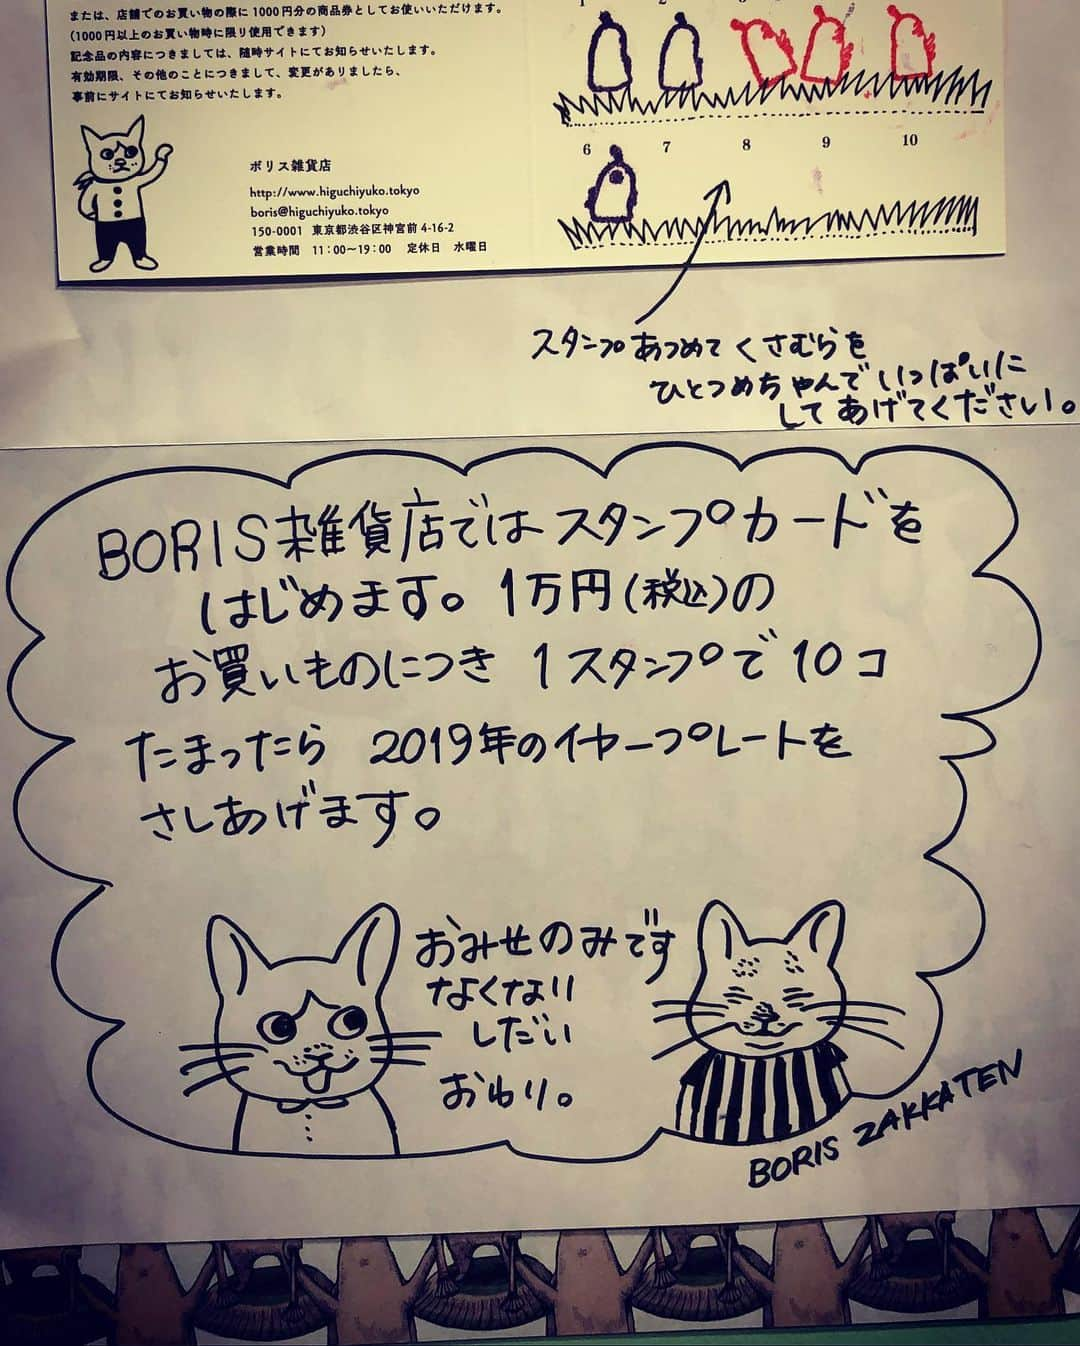 または、店舗でのお買い物の際に1000円分の商品券としてお使いいただけます。
(1000円以上のお買い物時に限り使用できます)
記念品の内容につきましては、随時サイトにてお知らせいたします。
有効期限、その他のことにつきまして、変更がありましたら、
事前にサイトにてお知らせいたします。
ボリス雑貨店
http://www.higuchiyuko.tokyo
boris@higuchiyuko.tokyo
150-0001 東京都渋谷区神宮前4-16-2
営業時間 11:00〜19:00 定休日 水曜日
6 7 8 9 10
スタンプあつめてくさむらを
ひとつめちゃんでいっぱいに
してあげてください。
BORIS雑貨店ではスタンプカードを
はじめます。1万円(税込)の
お買いものにつき 1スタンプで10コ
たまったら 2019年のイヤープレートを
さしあげます。
おみせのみです
なくなり
しだい
おわり。
BORIS ZAKKATEN